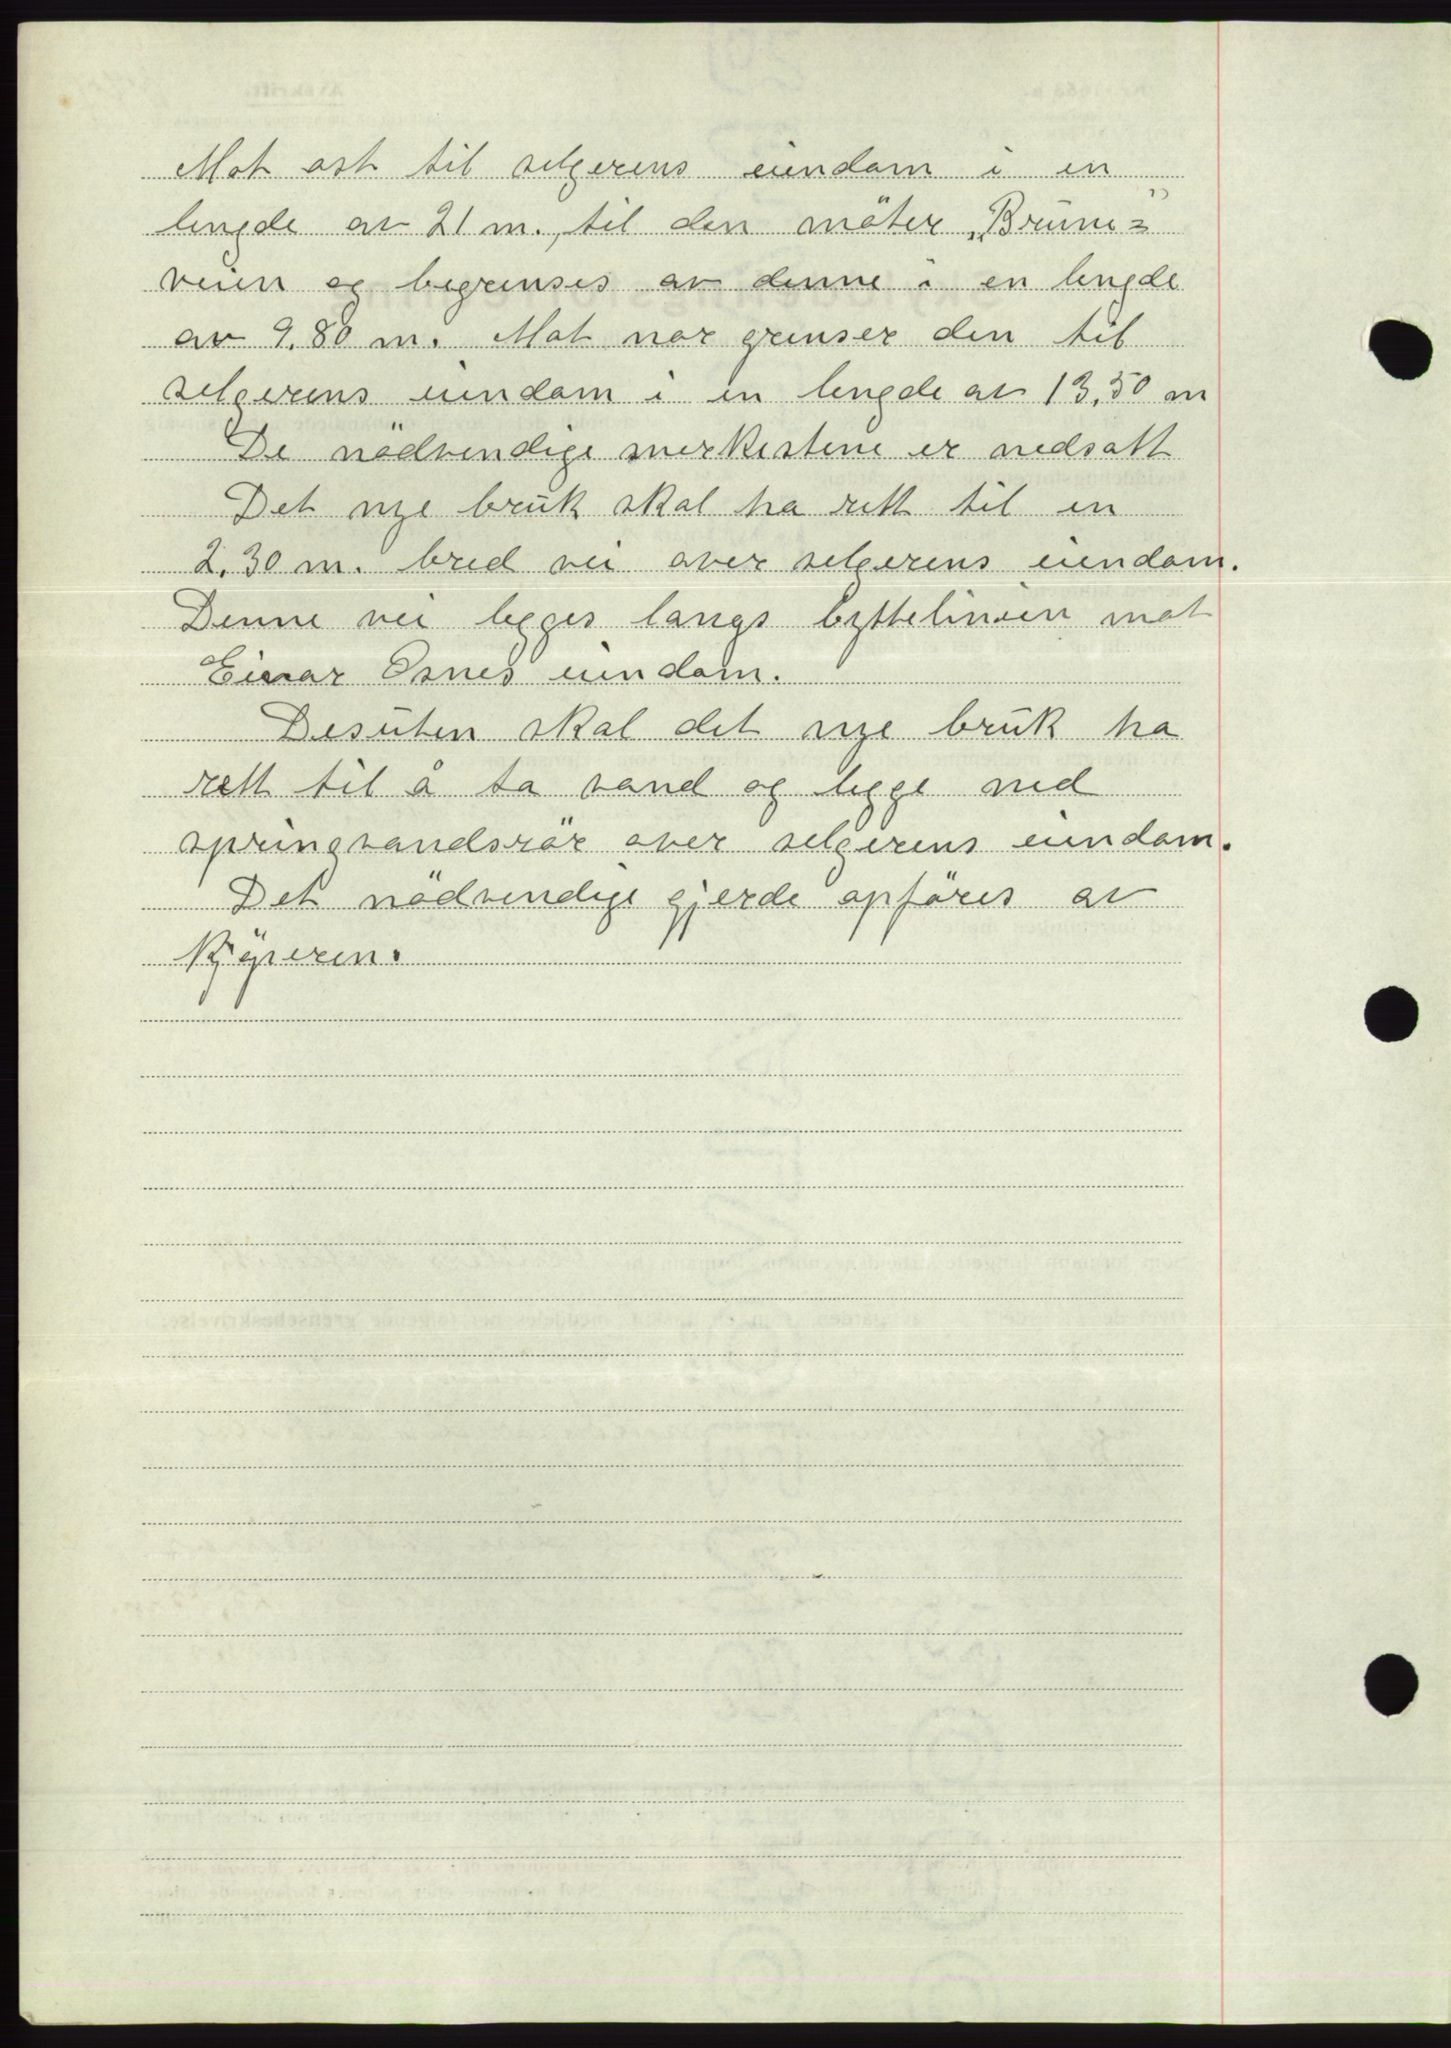 Mot ost til selgerens eiendom i en
lengde av 21 m., til den möter „Brune=”
veien og begrenses av denne i en lengde
av 9.80 m. Mot nor grenser den til
selgerens eiendom i en lengde av 13,50 m
De nödvendige merkestene er nedsatt
Det nye bruk skal ha rett til en
2.30 m. bred vei over selgerens eiendom.
Denne vei legges langs byttelinien mot
Einar Osnes eiendom.
Desuten skal det nye bruk ha
rett til å ta vand og legge ned
springvandsrör over selgerens eiendom.
Det nödvendige gjerde opföres av
kjöperen.